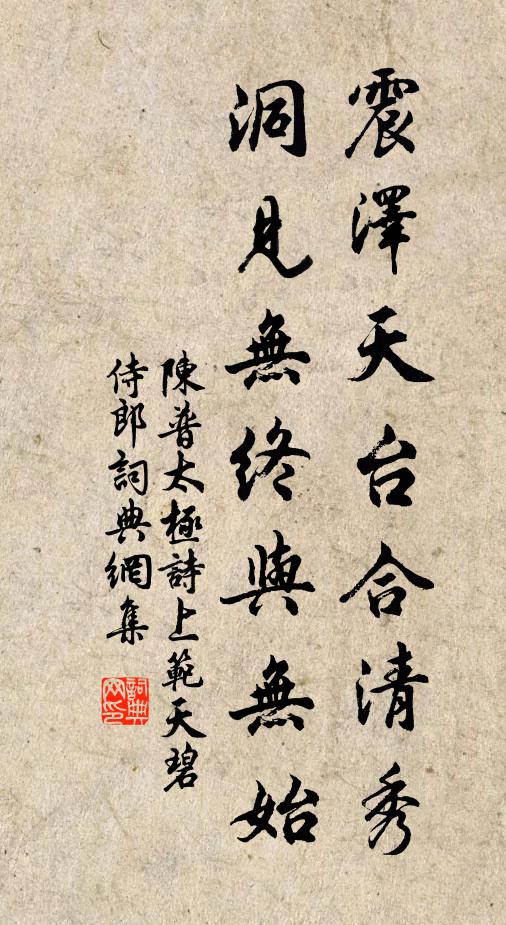 震澤天台合清秀
洞見無終與無始
陳普太極詩上範天碧
侍郎詞典網集
詞典
网印